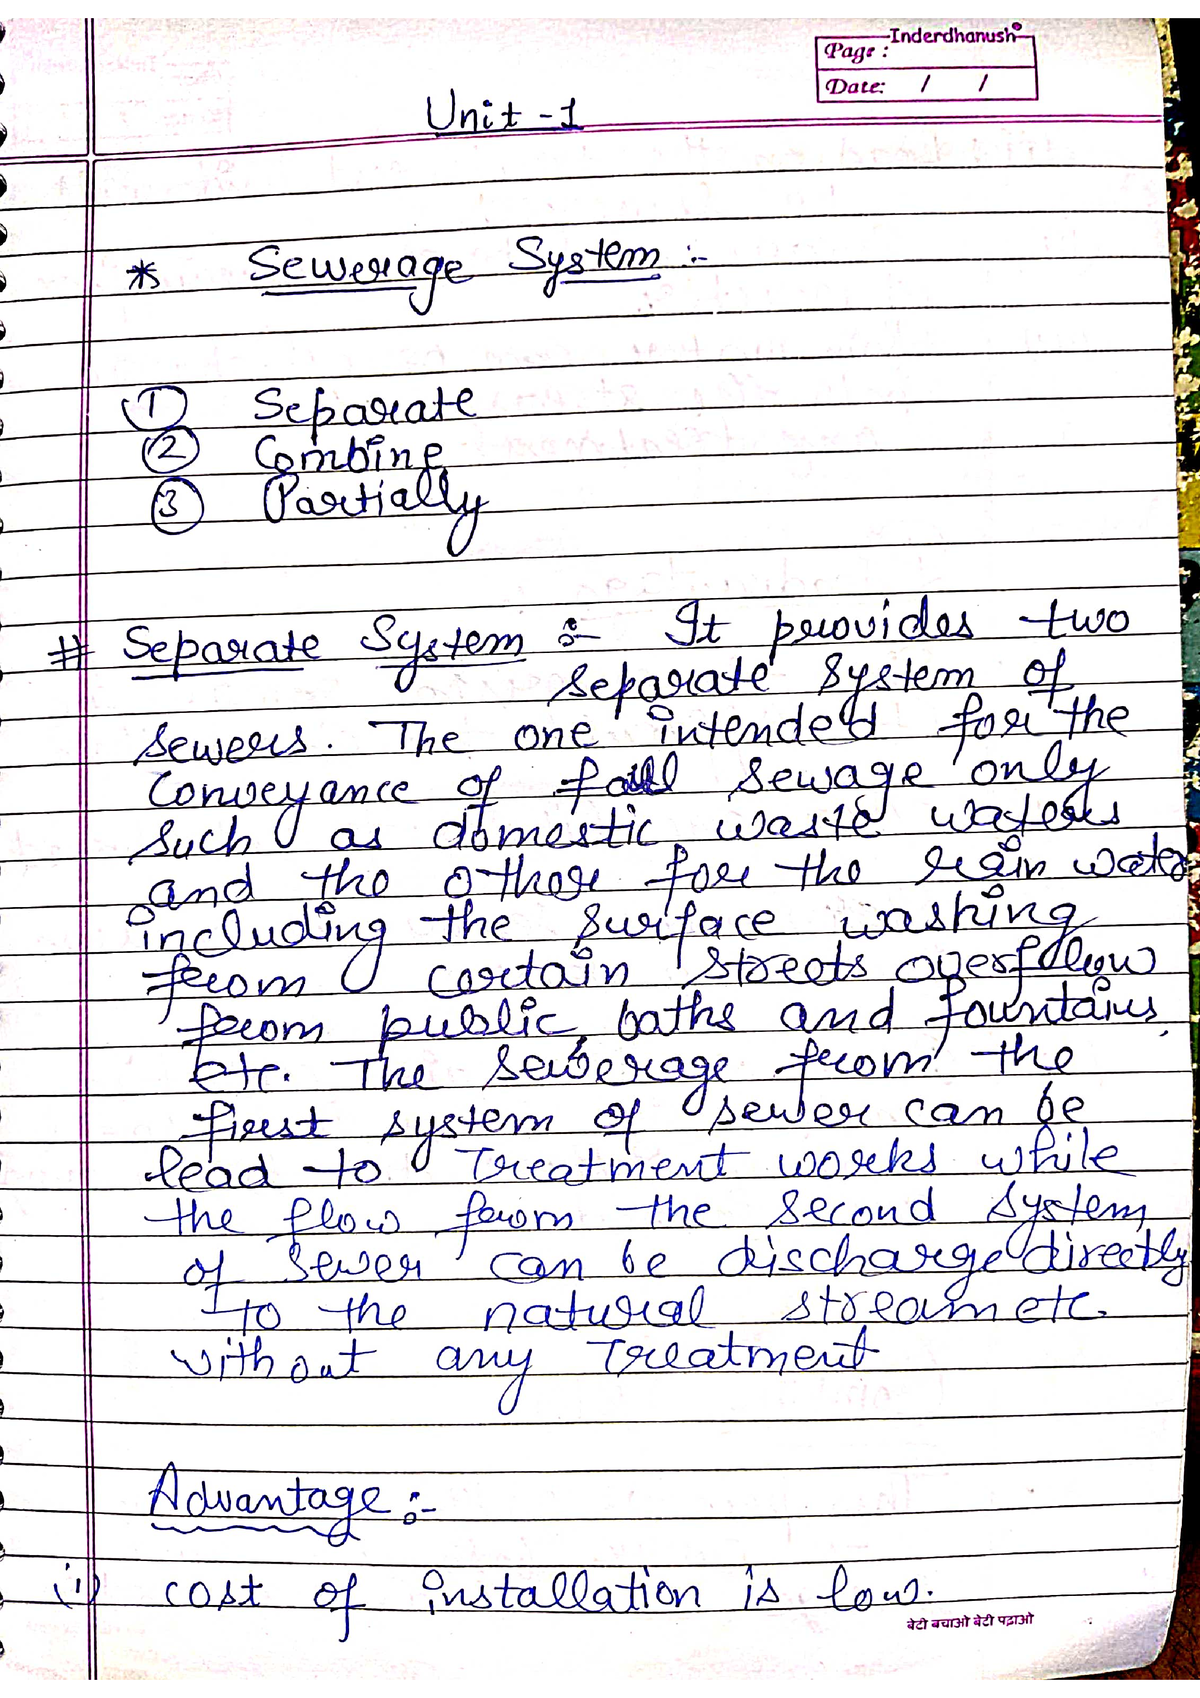 Inderdhanush
Page :
Date: / /
Unit - 1
* Sewerage System :-
① Separate
② Combine
③ Partially
# Separate System :- It provides two
separate system of
sewers. The one intended for the
conveyance of sewage only
such as domestic waste waters
and the other for the rain water
including the surface washing
from certain streets overflow
from public baths and fountains,
etc. The sewerage from the
first system of sewer can be
lead to Treatment works while
the flow from the second system
of sewer can be discharge directly
to the natural stream etc.
without any Treatment
Advantage :-
(i) cost of installation is low.
बेटी बचाओ बेटी पढ़ाओ